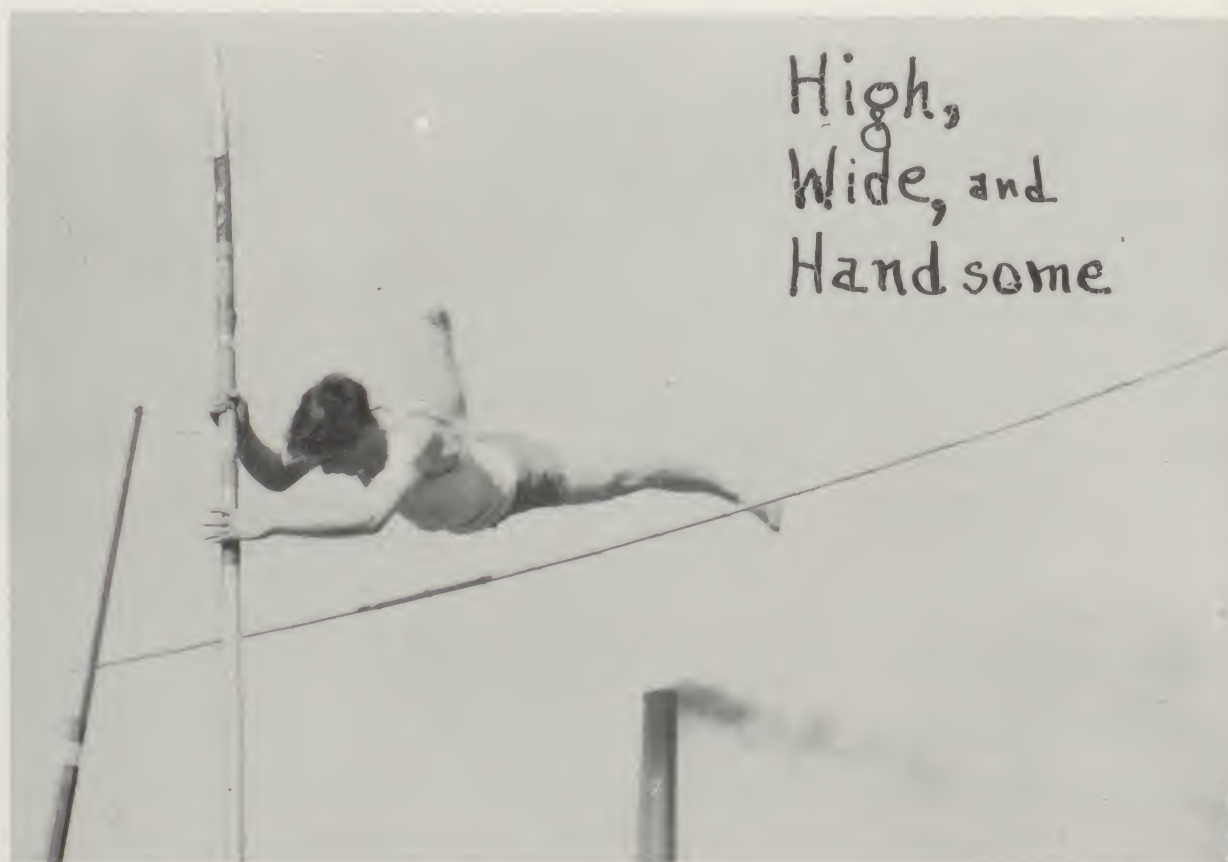 High,
Wide, and
Handsome